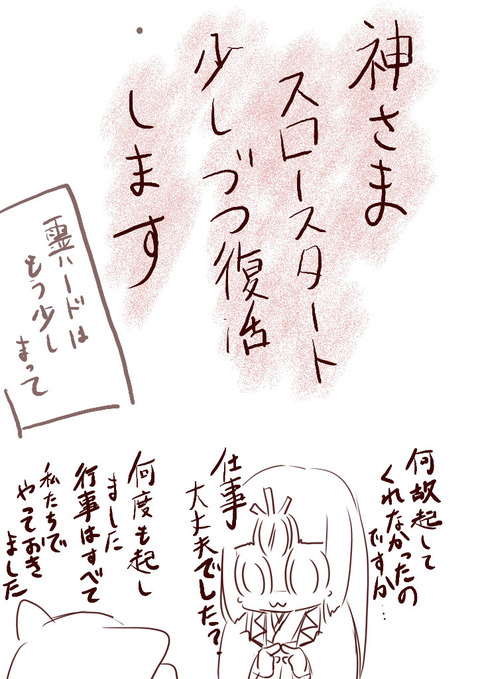 神さま
スロースタート
少しづつ復活
します
霊ハードは
もう少し
まって
何故起して
くれなかったの
ですか…
仕事
大丈夫でした？
何度も起し
ました
行事はすべて
私たちで
やっておき
ました